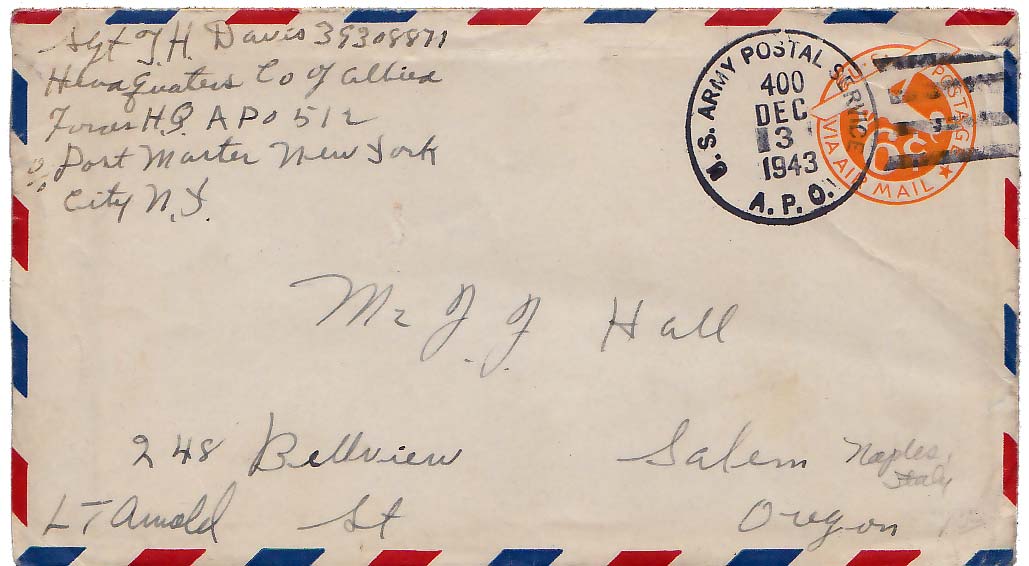 Sgt T. H. Davis 39308871
Headquaters Co of Allied
Forces H.Q. APO 512
% Post Master New York
City N.Y.
U.S. ARMY POSTAL SERVICE
400
DEC
3
1943
A.P.O.
POSTAGE
6¢
VIA AIR MAIL
Mr J. J. Hall
248 Bellview Salem
Naples,
Italy
LT Arnold St Oregon